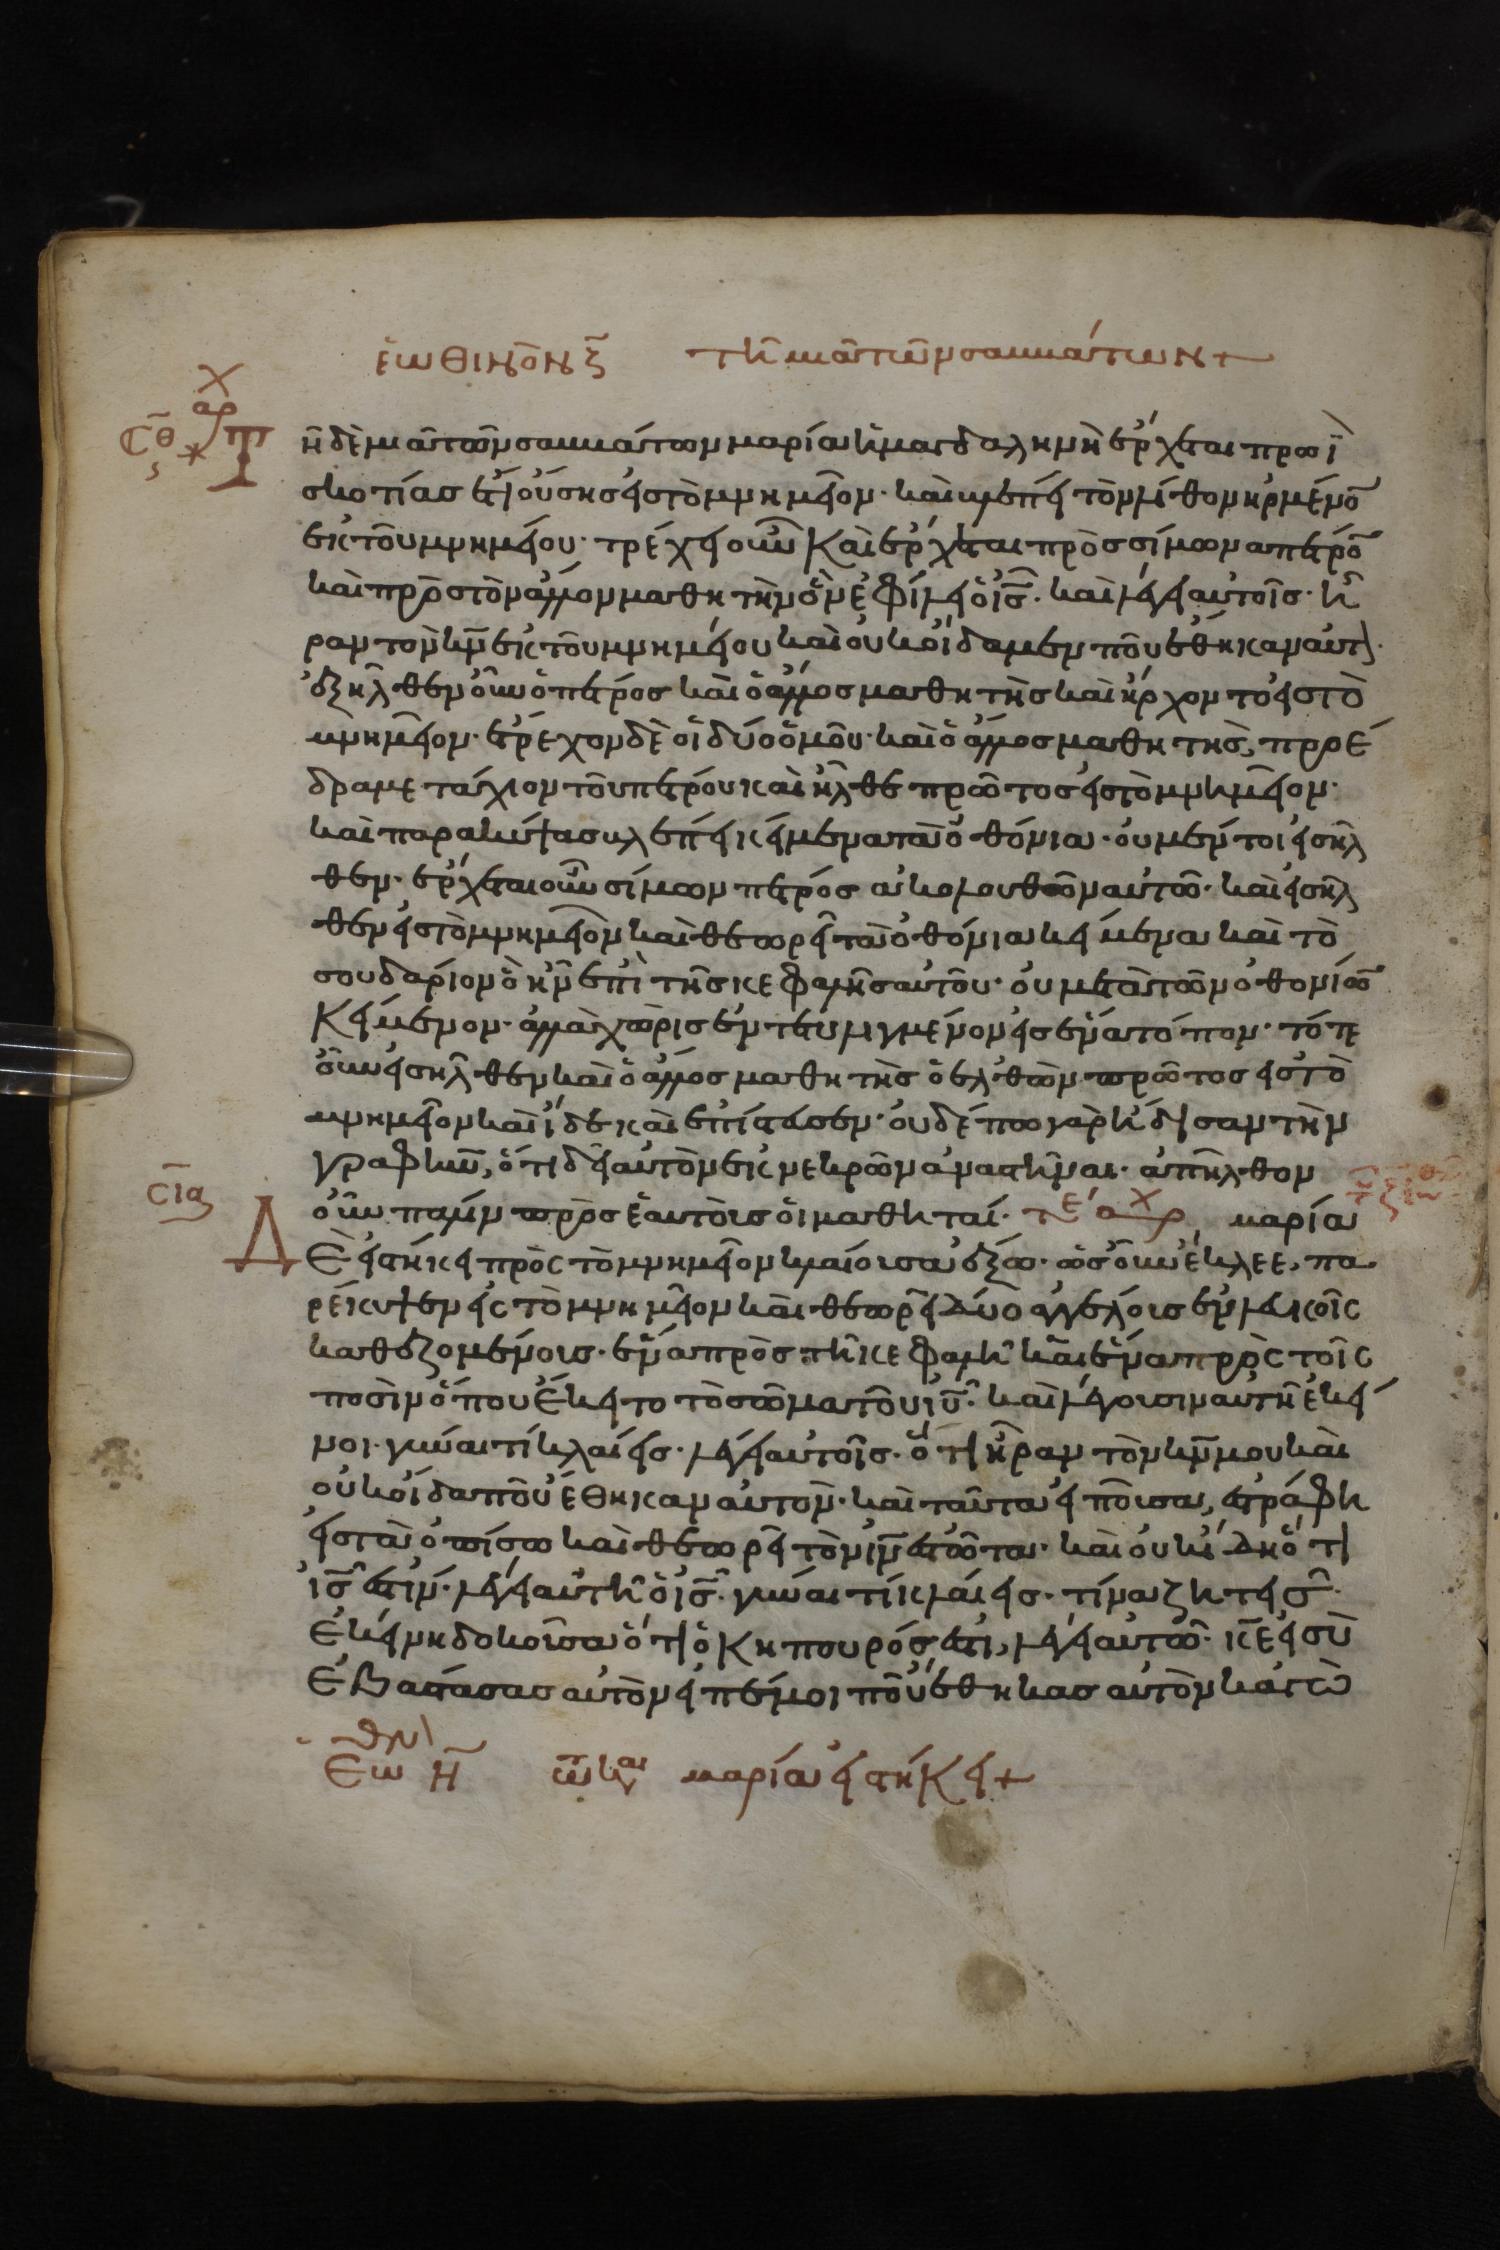 ἑωθινὸν ζ̃ τῆ μιᾶ τῶν σαββάτων +
χ
αρ
σ̅θ
ς
Τ
ῆ δὲ μιᾶ τῶν σαββάτων μαρία ἡ μαγδαληνὴ ἔρχεται πρωῒ
σκοτίας ἔτι οὔσης εἰς τὸ μνημεῖον· καὶ βλέπει τὸν λίθον ἠρμένο̅
ἐκ τοῦ μνημείου· τρέχει οὖν καὶ ἔρχεται πρὸς σίμωνα πέτρο̅
καὶ πρὸς τὸν ἄλλον μαθητὴν ὃν ἐφίλει ὁ ι̅ς̅· καὶ λέγει αὐτοῖς· ἦ
ραν τὸν κ̅ν̅ ἐκ τοῦ μνημείου καὶ οὐκ οἴδαμεν ποῦ ἔθηκαν αὐτ̀·
ἐξῆλθεν οὖν ὁ πέτρος καὶ ὁ ἄλλος μαθητὴς καὶ ἤρχοντο εἰς τὸ
μνημεῖον· ἔτρεχον δὲ οἱ δύο ὁμοῦ· καὶ ὁ ἄλλος μαθητὴς, προέ
δραμε τάχιον τοῦ πέτρου καὶ ἦλθε πρῶτος εἰς τὸ μνημεῖον·
καὶ παρακύψας βλέπει κείμενα τὰ ὀθόνια· οὐ μέντοι εἰσῆλ
θεν· ἔρχεται οὖν σίμων πέτρος ἀκολουθῶν αὐτῶ· καὶ εἰσῆλ
θεν εἰς τὸ μνημεῖον καὶ θεωρεῖ τὰ ὀθόνια κείμενα καὶ τὸ
σουδάριον ὃ ἦν ἐπὶ τῆς κεφαλῆς αὐτοῦ· οὐ μετὰ τῶν ὀθονίω̅
κείμενον· ἀλλὰ χωρὶς ἐντετυλιγμένον εἰς ἕνα τόπον· τότε
οὖν εἰσῆλθεν καὶ ὁ ἄλλος μαθητὴς ὁ ἐλθὼν πρῶτος εἰς τὸ
μνημεῖον καὶ ἴδε καὶ ἐπίστευσεν· οὐδέπω γὰρ ἤδησαν τὴν
γραφὴν, ὅτι δεῖ αὐτὸν ἐκ νεκρῶν ἀναστῆναι· ἀπῆλθον
σ̅ια
οὖν πάλιν πρὸς ἑαυτοὺς οἱ μαθηταί· τέ αρχ μαρία
Δ
ὲ εἱστήκει πρὸς τὸ μνημεῖον κλαίουσα ἔξω· ὡς οὖν ἔκλεε, πα
ρέκυψεν εἰς τὸ μνημεῖον καὶ θεωρεῖ δύο ἀγγέλους ἐν λευκοῖς
καθεζομένους· ἕνα πρὸς τῆ κεφαλῆ καὶ ἕνα πρὸς τοῖς
ποσὶν ὅπου ἔκειτο τὸ σῶμα τοῦ ι̅υ̅· καὶ λέγουσιν αὐτῆ ἐκεῖ
νοι· γύναι τί κλαίεις· λέγει αὐτοῖς· ὅτι ἦραν τὸν κ̅ν̅ μου καὶ
οὐκ οἶδα ποῦ ἔθηκαν αὐτόν· καὶ ταῦτα εἰποῦσα, ἐστράφη
εἰς τὰ ὀπίσω καὶ θεωρεῖ τὸν ι̅ν̅ ἑστῶτα· καὶ οὐκ ἤδει ὅτι
ι̅ς̅ ἐστίν· λέγει αὐτῆ ὁ ι̅ς̅· γύναι τί κλαίεις· τίνα ζητεῖς·
ἐκείνη δοκοῦσα ὅτι ὁ κηπουρός ἐστι, λέγει αὐτῶ· κ̅ε̅ εἰ σὺ
ἐβάστασας αὐτὸν εἰπέ μοι ποῦ ἔθηκας αὐτὸν κἀγὼ
ἑω Η̃ τῶ καιρ μαρία εἱστήκει +